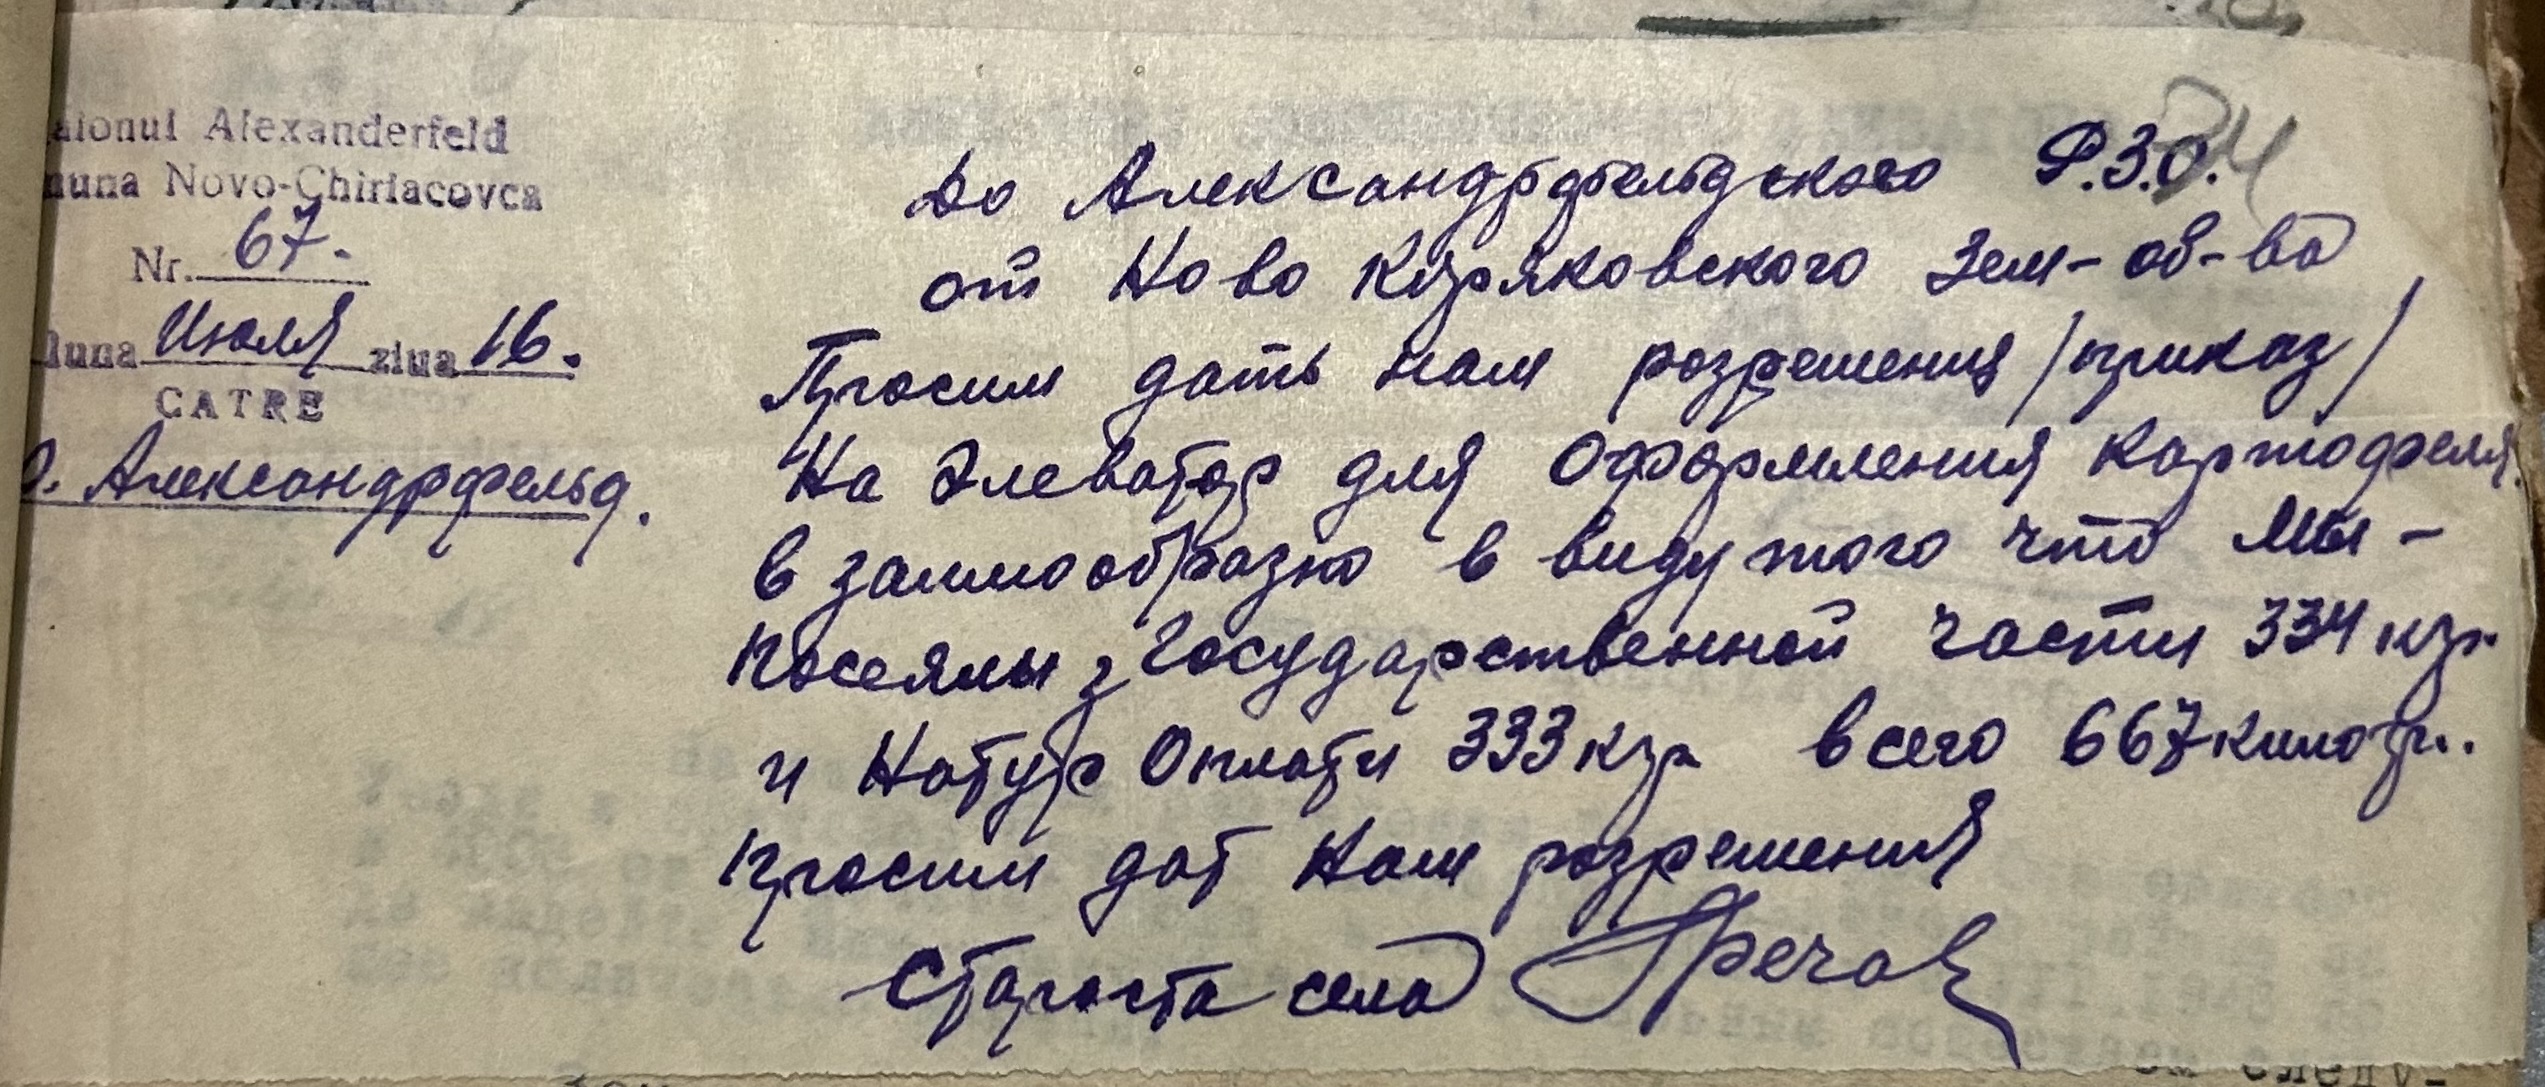 aionul Alexanderfeld
nuna Novo-Chiriacovca
Nr. 67.
luna Июля ziua 16.
CATRE
О. Александрфельд.
34
До Александрфельдского Р.З.О.
от Ново Киряковского Зем-об-ва
Просим дать нам розрешения /приказ/
На Элеватор для Оформления Картофеля
в заимообразно в виду того что мы -
посеялы з Государственной части 334 кгр.
и Натур Оплати 333 кгр всего 667 килогр..
просим дат нам розрешения
Староста села Гречов